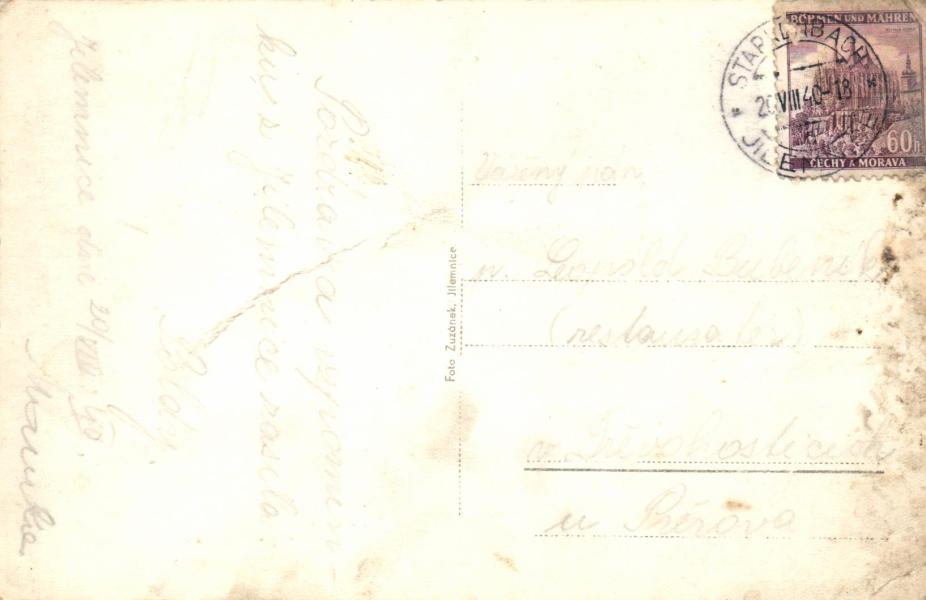 P.T.
Pozdrav a vzpomín-
ku s Jilemnice zasílá
Jilemnice dne 20/VIII 40
Foto Zuzánek, Jilemnice
BÖHMEN UND MÄHREN
60h
ČECHY A MORAVA
STARKENBACH
20 VIII 40-18
Vážený pan
p. Leopold
(restauratér)
v Dřevohosticích
u Přerova